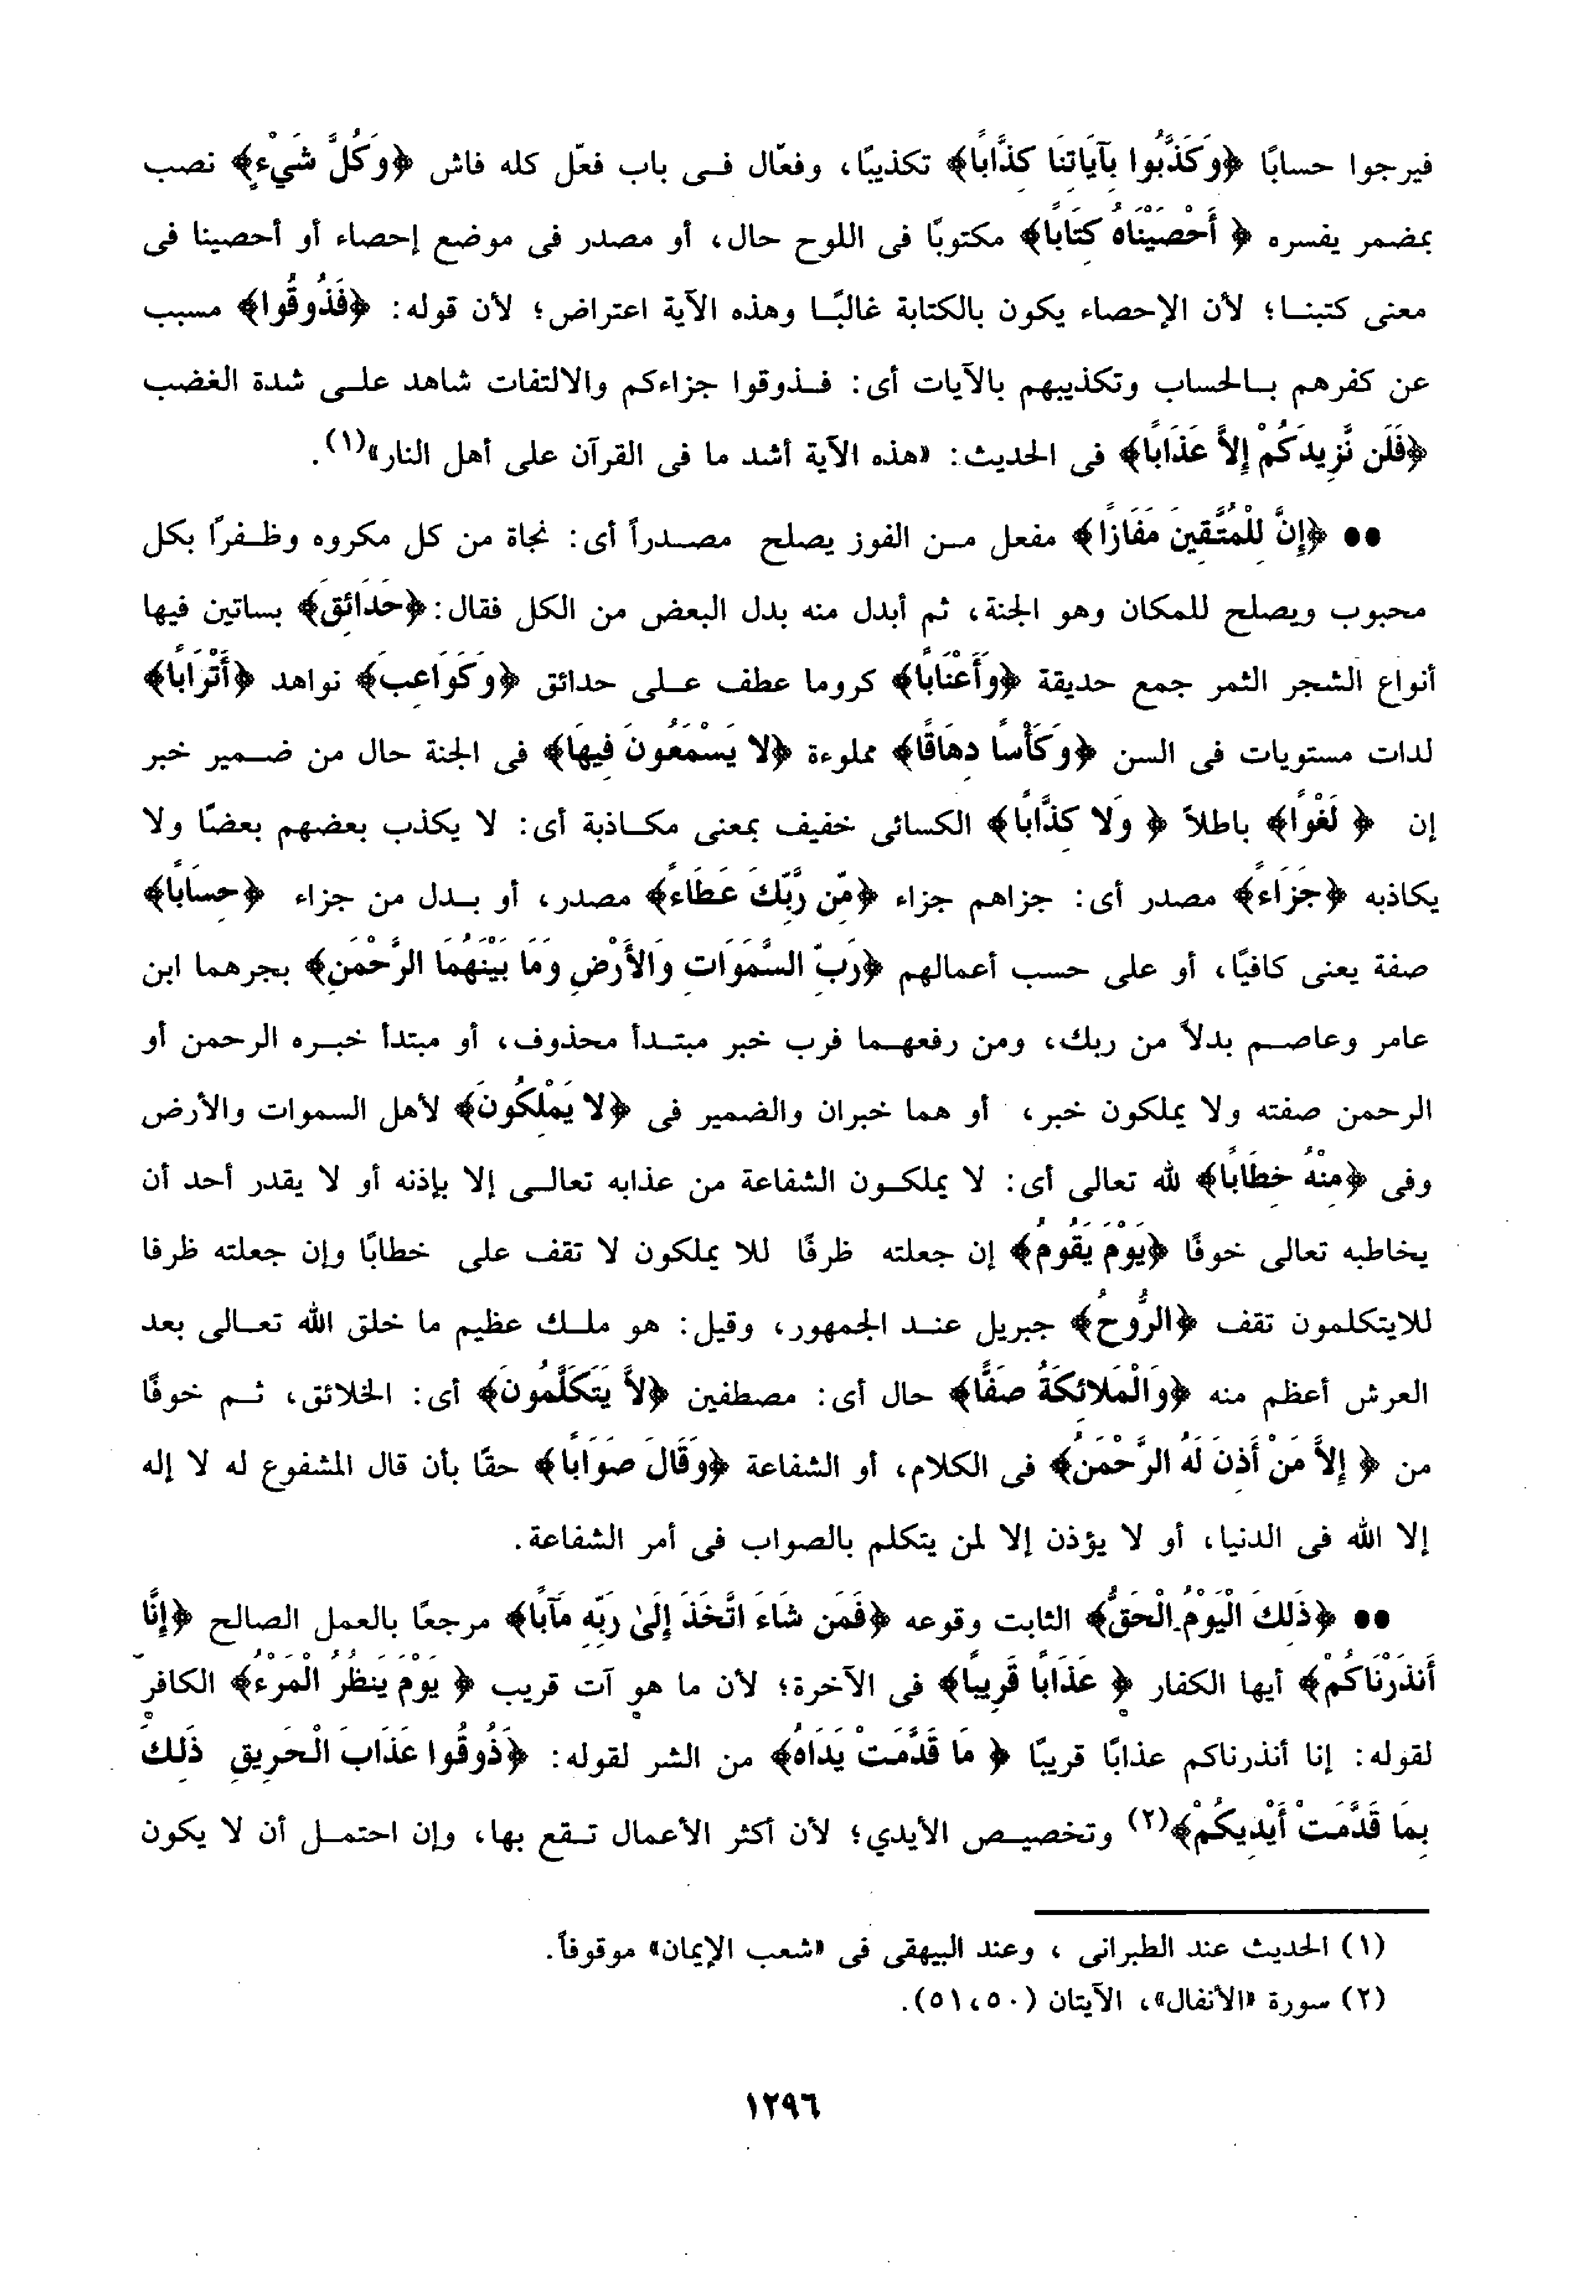 فيرجوا حسابًا ﴿وَكَذَّبُوا بِآيَاتِنَا كِذَّابًا﴾ تكذيبًا، وفعّال فى باب فعّل كله فاش ﴿وَكُلَّ شَيْءٍ﴾ نصب
بمضمر يفسره ﴿أَحْصَيْنَاهُ كِتَابًا﴾ مكتوبًا فى اللوح حال، أو مصدر فى موضع إحصاء أو أحصينا فى
معنى كتبنا؛ لأن الإحصاء يكون بالكتابة غالبًا وهذه الآية اعتراض؛ لأن قوله: ﴿فَذُوقُوا﴾ مسبب
عن كفرهم بالحساب وتكذيبهم بالآيات أى: فذوقوا جزاءكم والالتفات شاهد على شدة الغضب
﴿فَلَن نَّزِيدَكُمْ إِلاَّ عَذَابًا﴾ فى الحديث: «هذه الآية أشد ما فى القرآن على أهل النار»(١).
●● ﴿إِنَّ لِلْمُتَّقِينَ مَفَازًا﴾ مفعل من الفوز يصلح مصدراً أى: نجاة من كل مكروه وظفرًا بكل
محبوب ويصلح للمكان وهو الجنة، ثم أبدل منه بدل البعض من الكل فقال: ﴿حَدَائِقَ﴾ بساتين فيها
أنواع الشجر الثمر جمع حديقة ﴿وَأَعْنَابًا﴾ كروما عطف على حدائق ﴿وَكَوَاعِبَ﴾ نواهد ﴿أَتْرَابًا﴾
لدات مستويات فى السن ﴿وَكَأْسًا دِهَاقًا﴾ مملوءة ﴿لا يَسْمَعُونَ فِيهَا﴾ فى الجنة حال من ضمير خبر
إن ﴿لَغْوًا﴾ باطلاً ﴿وَلا كِذَّابًا﴾ الكسائى خفيف بمعنى مكاذبة أى: لا يكذب بعضهم بعضًا ولا
يكاذبه ﴿جَزَاءً﴾ مصدر أى: جزاهم جزاء ﴿مِّن رَّبِّكَ عَطَاءً﴾ مصدر، أو بدل من جزاء ﴿حِسَابًا﴾
صفة يعنى كافيًا، أو على حسب أعمالهم ﴿رَبِّ السَّمَوَاتِ وَالأَرْضِ وَمَا بَيْنَهُمَا الرَّحْمَنِ﴾ بجرهما ابن
عامر وعاصم بدلاً من ربك، ومن رفعهما فرب خبر مبتدأ محذوف، أو مبتدأ خبره الرحمن أو
الرحمن صفته ولا يملكون خبر، أو هما خبران والضمير فى ﴿لا يَمْلِكُونَ﴾ لأهل السموات والأرض
وفى ﴿مِنْهُ خِطَابًا﴾ لله تعالى أى: لا يملكون الشفاعة من عذابه تعالى إلا بإذنه أو لا يقدر أحد أن
يخاطبه تعالى خوفًا ﴿يَوْمَ يَقُومُ﴾ إن جعلته ظرفًا للا يملكون لا تقف على خطابًا وإن جعلته ظرفا
للايتكلمون تقف ﴿الرُّوحُ﴾ جبريل عند الجمهور، وقيل: هو ملك عظيم ما خلق الله تعالى بعد
العرش أعظم منه ﴿وَالْمَلائِكَةُ صَفًّا﴾ حال أى: مصطفين ﴿لاَّ يَتَكَلَّمُونَ﴾ أى: الخلائق، ثم خوفًا
من ﴿إِلاَّ مَنْ أَذِنَ لَهُ الرَّحْمَنُ﴾ فى الكلام، أو الشفاعة ﴿وَقَالَ صَوَابًا﴾ حقًا بأن قال المشفوع له لا إله
إلا الله فى الدنيا، أو لا يؤذن إلا لمن يتكلم بالصواب فى أمر الشفاعة.
●● ﴿ذَلِكَ الْيَوْمُ الْحَقُّ﴾ الثابت وقوعه ﴿فَمَن شَاءَ اتَّخَذَ إِلَىٰ رَبِّهِ مَآبًا﴾ مرجعًا بالعمل الصالح ﴿إِنَّا
أَنذَرْنَاكُمْ﴾ أيها الكفار ﴿عَذَابًا قَرِيبًا﴾ فى الآخرة؛ لأن ما هو آت قريب ﴿يَوْمَ يَنظُرُ الْمَرْءُ﴾ الكافر
لقوله: إنا أنذرناكم عذابًا قريبًا ﴿مَا قَدَّمَتْ يَدَاهُ﴾ من الشر لقوله: ﴿ذُوقُوا عَذَابَ الْحَرِيقِ ذَلِكَ
بِمَا قَدَّمَتْ أَيْدِيكُمْ﴾(٢) وتخصيص الأيدي؛ لأن أكثر الأعمال تقع بها، وإن احتمل أن لا يكون
(١) الحديث عند الطبرانى ، وعند البيهقى فى «شعب الإيمان» موقوفاً.
(٢) سورة «الأنفال»، الآيتان (٥٠،٥١).
١٢٩٦